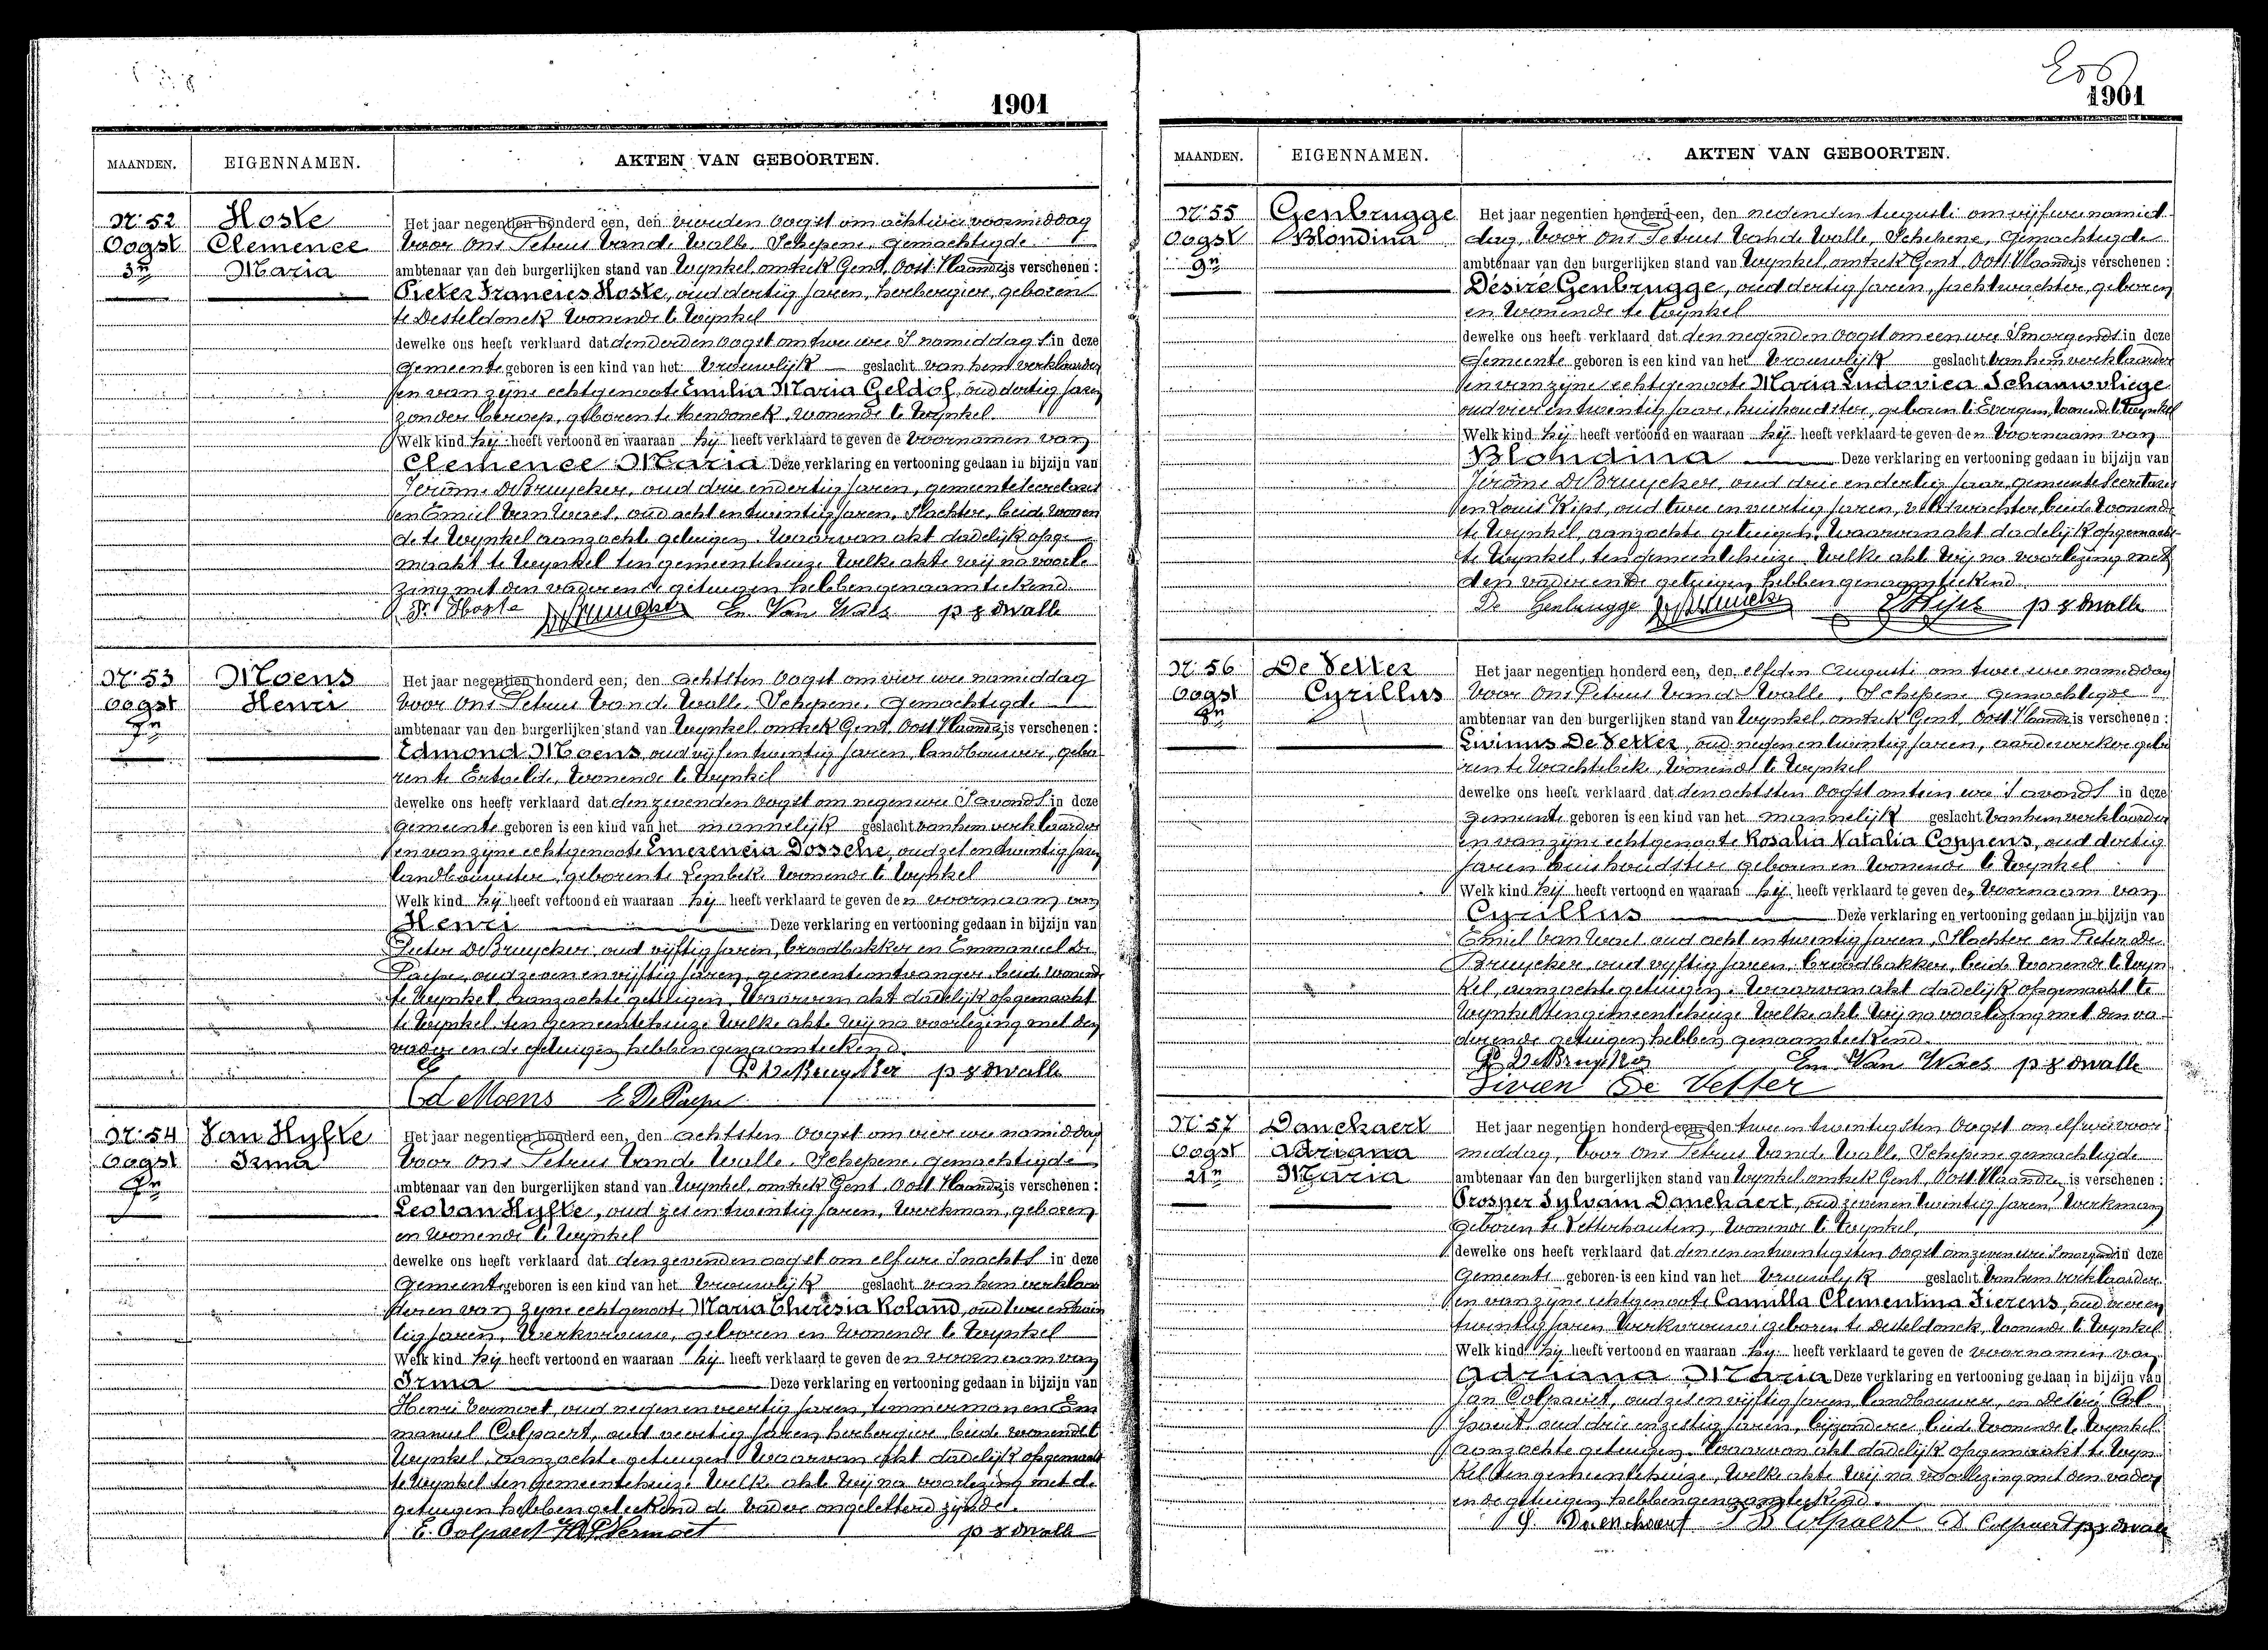 1901
MAANDEN. EIGENNAMEN. AKTEN VAN GEBOORTEN.
N: 52 Hoste Het jaar negentien honderd een, den vierden Oogst om acht ure voormiddag
Oogst Clemence Voor Ons Petrus Van de Walle, Schepene, Gemachtigde
3n Maria ambtenaar van den burgerlijken stand van Wynkel omtrek Gend, Oost Vlaandr is verschenen:
Pieter Francies Hoste, oud dertig jaren, herbergier, geboren
te Desteldonck wonende te Wynkel
dewelke ons heeft verklaard dat den derden Oogst om twee ure S namiddags in deze
Gemeente geboren is een kind van het Vrouwelijk geslacht van hem verklaarder
en van zyne echtgenoote Emilia Maria Geldof, oud dertig jaren
zonder beroep, geboren te Mendonck, wonende te Wynkel
Welk kind hij heeft vertoond en waaraan hij heeft verklaard te geven de Voornamen van
Clemence Maria Deze verklaring en vertooning gedaan in bijzijn van
Jerome De Bruycker, oud drie en dertig jaren, gemeente secretaris
en Emiel Van Waes, oud acht en twintig jaren, Slachter, beide wonen
de te Wynkel aanzochte getuigen. Waarvan akt dadelijk opge
maakt te Wynkel ten gemeentehuize Welke akte wij na voorle
zing met den vader en de getuigen hebben genaamteekend.
P. Hoste Em. Van Waes p vdwalle
N: 53 Moens Het jaar negentien honderd een, den achtsten Oogst om vier ure namiddag
Oogst Henri Voor Ons Petrus Van de Walle, Schepene, Gemachtigde
7n ambtenaar van den burgerlijken stand van Wynkel omtrek Gend, Oost Vlaandr is verschenen:
Edmond Moens, oud vijf en twintig jaren, landbouwer, gebo
ren te Ertvelde, wonende te Wynkel
dewelke ons heeft verklaard dat den zevenden Oogst om negen ure S avonds in deze
Gemeente geboren is een kind van het mannelijk geslacht van hem verklaarder
en van zyne echtgenoote Emerencia Dossche, oud zes en twintig jaren
landbouwster, geboren te Lembeke wonende te Wynkel
Welk kind hij heeft vertoond en waaraan hij heeft verklaard te geven den voornaam van
Henri Deze verklaring en vertooning gedaan in bijzijn van
Pieter De Bruycker, oud vijftig jaren, broodbakker en Emmanuel De
Paepe, oud zeven en vijftig jaren, gemeenteontvanger, beide wonende
te Wynkel, aanzochte getuigen. Waarvan akt dadelijk opgemaakt
te Wynkel ten Gemeentehuize Welke akte wij na voorlezing met den
vader en de getuigen hebben genaamteekend.
P. De Bruycker p vdwalle
Ed Moens E De Paepe
N: 54 Van Hyfte Het jaar negentien honderd een, den achtsten Oogst om vier ure namiddag
Oogst Irma Voor Ons Petrus Van de Walle, Schepene, Gemachtigde
7n ambtenaar van den burgerlijken stand van Wynkel omtrek Gent, Oost Vlaandr is verschenen:
Leo Van Hyfte, oud zes en twintig jaren, werkman, geboren
en wonende te Wynkel
dewelke ons heeft verklaard dat den zevenden oogst om elf ure S nachts in deze
Gemeente geboren is een kind van het Vrouwelijk geslacht van hem verklaar
der en van zyne echtgenoote Maria Theresia Roland, oud twee en twin
tig jaren, Werkvrouw, geboren en wonende te Wynkel
Welk kind hij heeft vertoond en waaraan hij heeft verklaard te geven den voornaam van
Irma Deze verklaring en vertooning gedaan in bijzijn van
Henri Vermoet, oud negen en veertig jaren, timmerman en Em
manuel Colpaert, oud veertig jaren, herbergier, beide wonende te
Wynkel, aanzochte getuigen Waarvan akt dadelijk opgemaakt
te Wynkel ten Gemeentehuize Welke akte wij na voorlezing met de
getuigen hebben geteekend de vader ongeletterd zijnde.
E. Colpaert Vermoet p vdwalle
1901
MAANDEN. EIGENNAMEN. AKTEN VAN GEBOORTEN.
N: 55 Genbrugge Het jaar negentien honderd een, den negenden Augusti om vijf ure namid
Oogst Blondina dag, Voor Ons Petrus Van de Walle, Schepene, Gemachtigde
9n ambtenaar van den burgerlijken stand van Wynkel, omtrek Gent, Oost Vlaandr is verschenen:
Désiré Genbrugge, oud dertig jaren, jachtwachter, geboren
en wonende te Wynkel
dewelke ons heeft verklaard dat den negenden Oogst om een ure Smorgends in deze
Gemeente geboren is een kind van het Vrouwelijk geslacht van hem verklaarder
en van zyne echtgenoote Maria Ludovica Schauvliege
oud vier en twintig jaar, huishoudster, geboren te Evergem, wonende te Wynkel
Welk kind hij heeft vertoond en waaraan hij heeft verklaard te geven den Voornaam van
Blondina Deze verklaring en vertooning gedaan in bijzijn van
Jérôme De Bruycker, oud drie en dertig jaar, gemeente Secretaris
en Louis Kips, oud twee en veertig jaren, veldwachter, beide wonende
te Wynkel, aanzochte getuigen, Waarvan akt dadelijk opgemaakt
te Wynkel, ten gemeentehuize Welke akte wij na voorlezing met
den vader en de getuigen hebben genaamteekend
De Genbrugge L Kips p vdwalle
N: 56 De Vetter Het jaar negentien honderd een, den elfden Augusti om twee ure namiddag
Oogst Cyrillus Voor Ons Petrus Van de Walle, Schepene Gemachtigde
8n ambtenaar van den burgerlijken stand van Wynkel, omtrek Gent, Oost Vlaandr is verschenen:
Livinus De Vetter, oud negen en twintig jaren, aardewerker gebo
ren te Wachtebeke, wonende te Wynkel
dewelke ons heeft verklaard dat den achtsten Oogst om tien ure S avonds in deze
Gemeente geboren is een kind van het mannelijk geslacht van hem verklaarder
en van zyne echtgenoote Rosalia Natalia Coppens, oud dertig
jaren huishoudster geboren en wonende te Wynkel
Welk kind hij heeft vertoond en waaraan hij heeft verklaard te geven den Voornaam van
Cyrillus Deze verklaring en vertooning gedaan in bijzijn van
Emiel Van Waes oud acht en twintig jaren, Slachter en Pieter De
Bruycker, oud vijftig jaren, broodbakker, beide wonende te Wyn
kel, aanzochte getuigen. Waarvan akt dadelijk opgemaakt te
Wynkel ten gemeentehuize Welke akte wij na voorlezing met den va
der en de getuigen hebben genaamteekend.
P. De Bruycker Em Van Waes p vdwalle
Livien De Vetter
N: 57 Danchaert Het jaar negentien honderd een, den twee en twintigsten Oogst om elf ure voor
Oogst Adriana middag, Voor Ons Petrus Van de Walle, Schepene gemachtigde
21n Maria ambtenaar van den burgerlijken stand van Wynkel omtrek Gent, Oost Vlaandren is verschenen:
Prosper Sylvain Danchaert, oud zeven en twintig jaren, Werkman
geboren te Letterhautem, wonende te Wynkel,
dewelke ons heeft verklaard dat den een en twintigsten Oogst om zeven ure Smorgends in deze
Gemeente geboren is een kind van het Vrouwelyk geslacht Van hem verklaarder
en van zyne echtgenoote Camilla Clementina Fierens, oud vier en
twintig jaren Werkvrouw, geboren te Desteldonck, wonende te Wynkel
Welk kind hij heeft vertoond en waaraan hij heeft verklaard te geven de voornamen van
Adriana Maria Deze verklaring en vertooning gedaan in bijzijn van
Jan Colpaert, oud zes en vijftig jaren, landbouwer, en Désiré Col
paert, oud drie en zestig jaren, bijzondere, beide wonende te Wynkel
aanzochte getuigen. Waarvan akt dadelijk opgemaakt te Wyn
kel ten gemeentehuize, Welke akte wij na voorlezing met den vader
en de getuigen hebben genaamteekend.
Danchaert J B Colpaert D. Colpaert p vdwalle